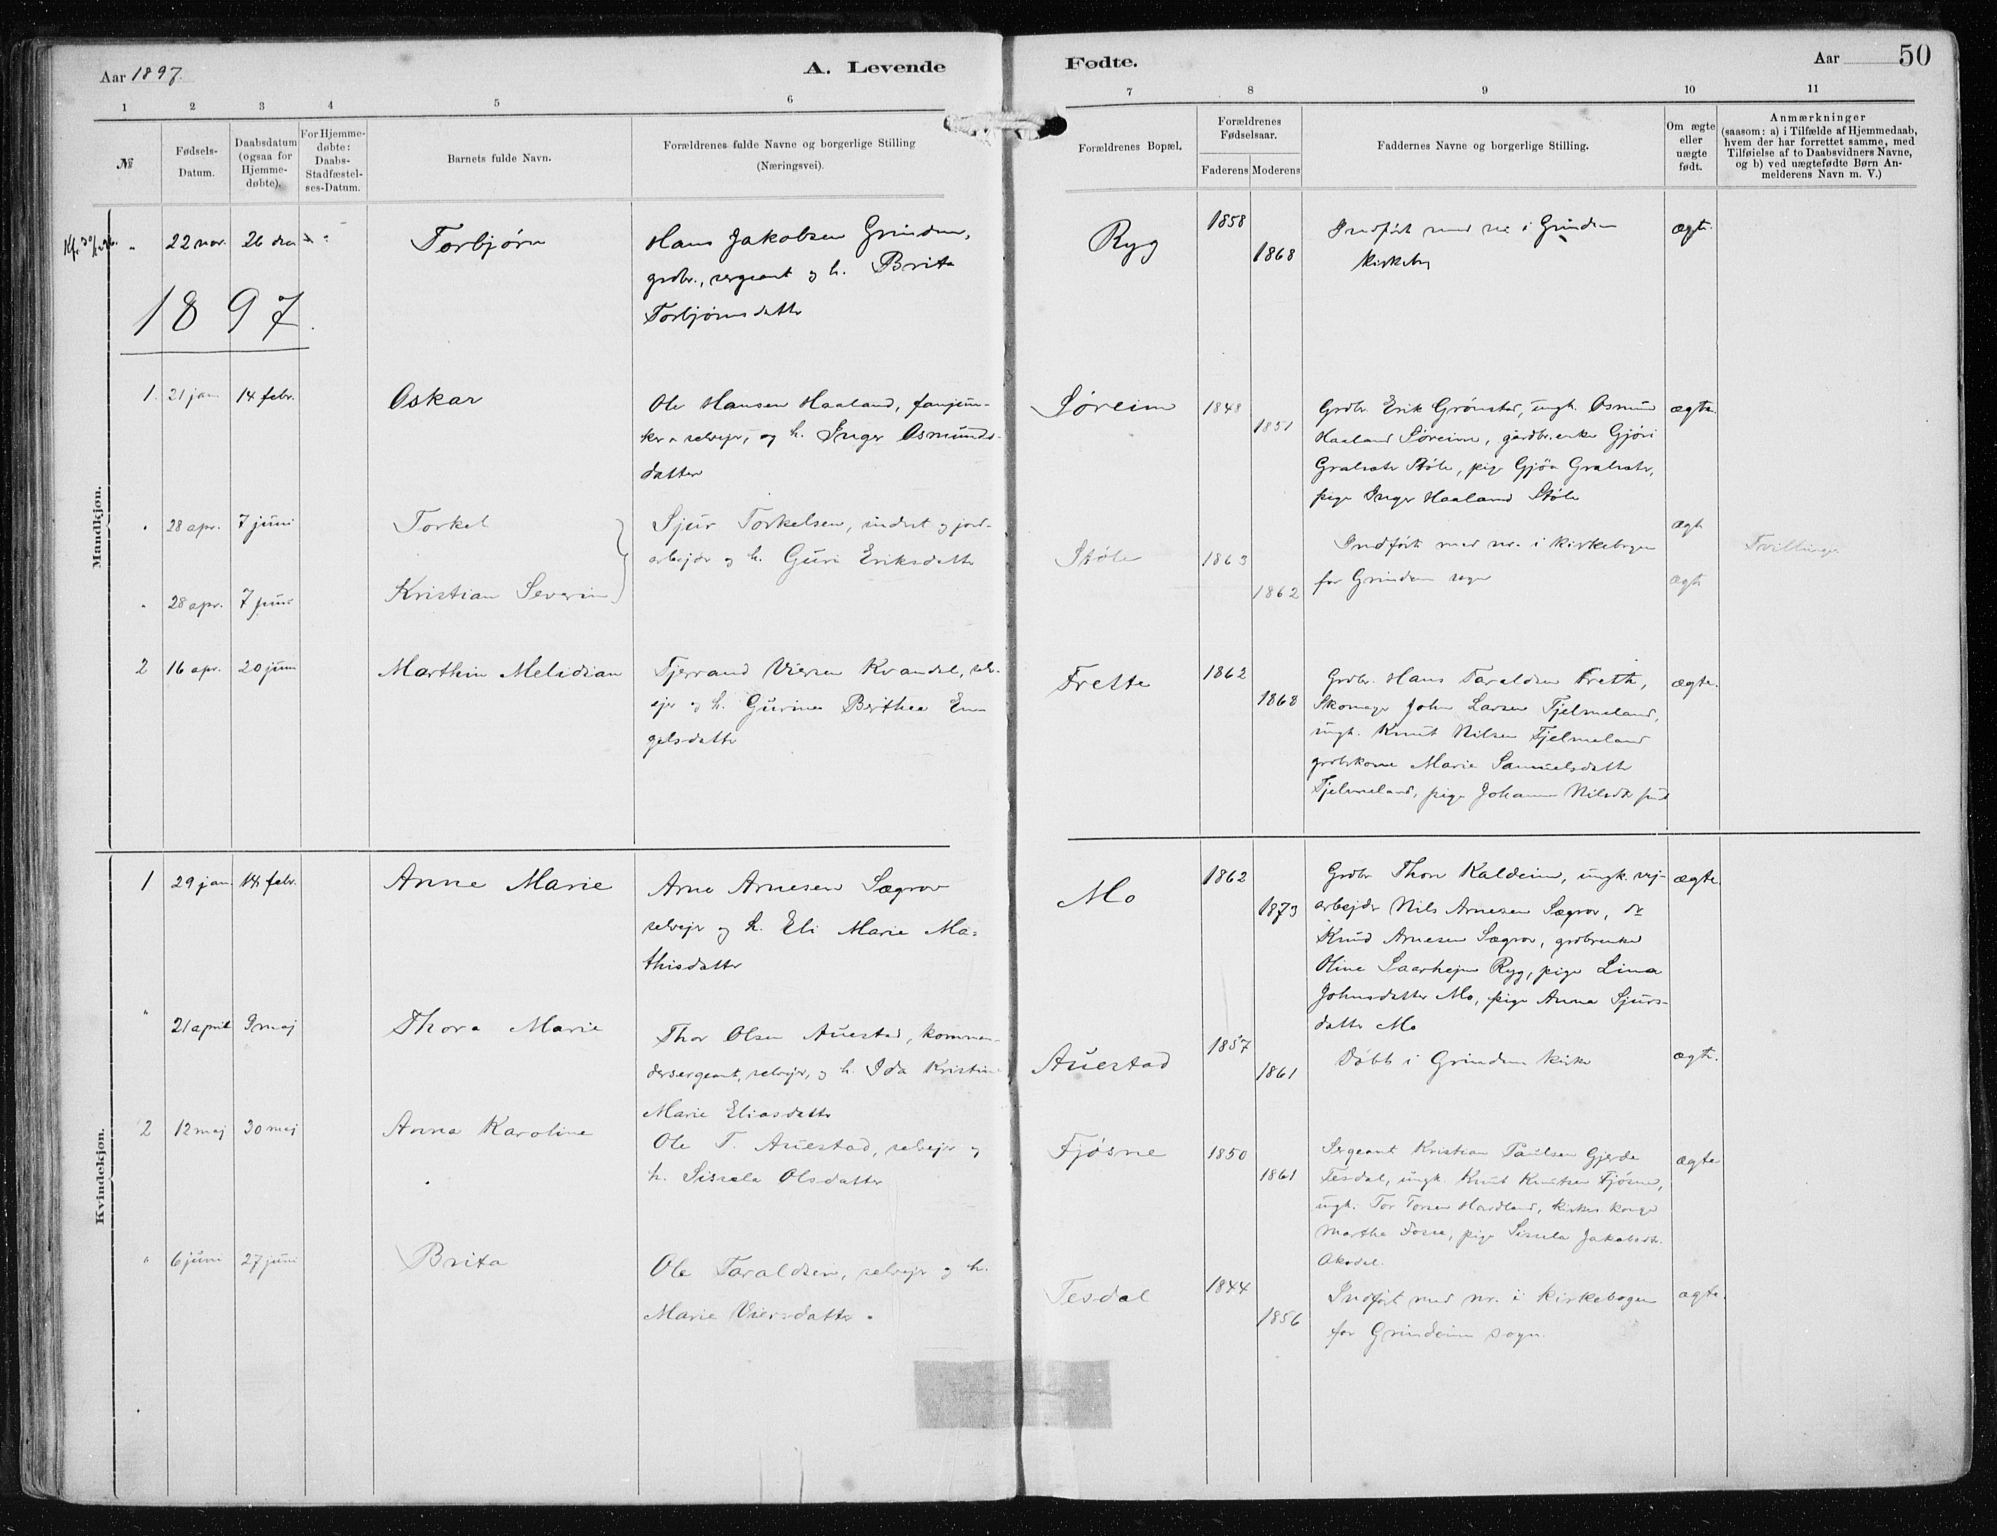 Aar 1897.
A. Levende
Fødte.
Aar
50
1 2 3 4 5 6 7 8 9 10 11
№
Fødsels-
Datum.
Daabsdatum
(ogsaa for
Hjemme-
døbte).
For Hjemme-
døbte:
Daabs-
Stadfæstel-
ses-Datum.
Barnets fulde Navn.
Forældrenes fulde Navne og borgerlige Stilling
(Næringsvei).
Forældrenes Bopæl.
Forældrenes
Fødselsaar.
Faderens Moderens
Faddernes Navne og borgerlige Stilling.
Om ægte
eller
uægte
født.
Anmærkninger
(saasom: a) i Tilfælde af Hjemmedaab,
hvem der har forrettet samme, med
Tilføielse af to Daabsvidners Navne,
og b) ved uægtefødte Børn An-
melderens Navn m. V.)
Mandkjøn.
" 22 nov. 26 dec
Torbjørn
Hans Jakobsen Grinden,
grdbr., sergeant og h. Brita
Torbjørnsdatter
Ryg
1858
1868
Indført med nr i Grinden
kirkebog
ægte.
1897.
1. 21 jan 14 febr.
Oskar
Ole Hansen Haaland, fanejun-
ker, selvejr, og h. Inger Osmunds-
datter
Søreim
1848
1851
Grdbr. Erik Grønstad, ungk. Osmund
Haaland Søreim, gardbr.enke Gjøri
Støle, pige Gjøa
pige Inger Haaland Støle
ægte.
" 28 apr. 7 juni
Torkel
Sjur Torkelsen, inderst og jord-
arbejdr og h. Guri Eriksdattr
Støle
1863
Indført med nr. i kirkebogen
ægte
Tvillinger
" 28 apr. 7 juni
Kristian Severin
1862
for Grindem sogn
ægte
2 16 apr. 20 juni
Marthin Melidian
Tjerrand Viersen Kvandal, selv-
ejer og h. Gurine Berthea En-
gelsdattr
Frette
1862
1868
Grdbr. Hans Taraldsen Freth,
Skomager John Larsen Fjelmeland,
ungk. Knut Nilsen Fjelmeland
grdbrkone Marie Samuelsdattr
Fjelmeland, pige Johanne Nilsdtr
ægte.
Kvindekjøn.
1 29 jan. 14 febr.
Anne Marie
Arne Arnesen Sægrov
selvejr og h. Eli Marie Ma-
thisdatter
Mo
1862
1873
Grdbr Thore Kaldeim, ungk. vej-
arbejdr Nils Arnesen Sægrov, do
Knud Arnesen Sægrov, grdbrenke
Oline Saarhejm Ryg, pige Lina
Johnsdatter Mo, pige Anna Sjurs-
datter Mo
ægte.
" 21 april 9 maj
Thora Marie
Thor Olsen Auestad, komman-
dersergeant, selvejr, og h. Ida Kristin-
Marie Eliasdattr
Auestad
1857
1861
Døbt i Grindem kirke
ægte.
2 12 maj 30 maj
Anna Karoline
Ole T. Auestad, selvejr og
h. Sissela Olsdatter
Fjøsne
1850
1861
Sergeant Kristian Paulsen Gjerde
Tesdal, ungk. Knut Knutsen Fjøsne,
ungk. Tor Torsen Hardland,
Martha Fosse, pige Sissela Jakobsdt.
Akrdal.
ægte
" 6 juni 27 juni
Brita
Ole Taraldsen, selvejr og h.
Marie Viersdatter.
Tesdal
1844
1856
Indført med nr. i kirkebogen
for Grindeim sogn.
ægte.